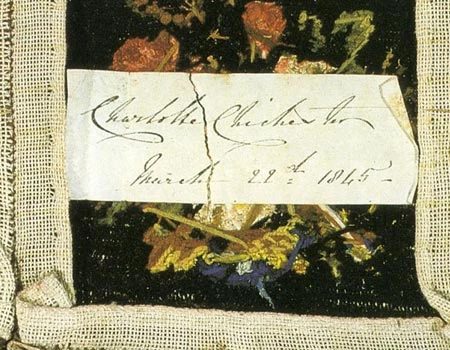 Charlotte Chichester
March 22d. 1845